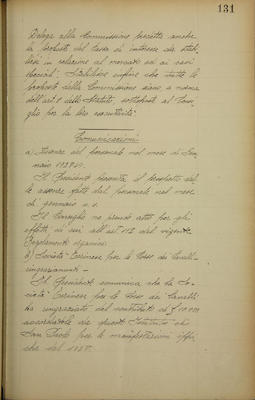 131
Delega alla Commissione suddetta anche
la facoltà del tasso di interesse da stabi-
lirsi in relazione al mercato ed ai casi
speciali. Stabilisce infine che tutte le
proposte della Commissione siano, a norma
dell'art. 8 dello Statuto, sottoposte al Consi-
glio per la loro esecutività.
Comunicazioni
a) Assenze del personale nel mese di Gen-
naio 1928
Il Presidente presenta il prospetto del-
le assenze fatte dal personale nel mese
di gennaio u.s.
Il Consiglio ne prende atto per gli
effetti di cui all'art. 112 del vigente
Regolamento organico.
b) Società Torinese per le Corse di Cavalli -
ringraziamenti -
Il Presidente comunica che la So-
cietà Torinese per le Corse dei Cavalli
ha ringraziato del contributo di £ 10.000
accordatole da questo Istituto di
San Paolo per le manifestazioni ippi-
che del 1928.